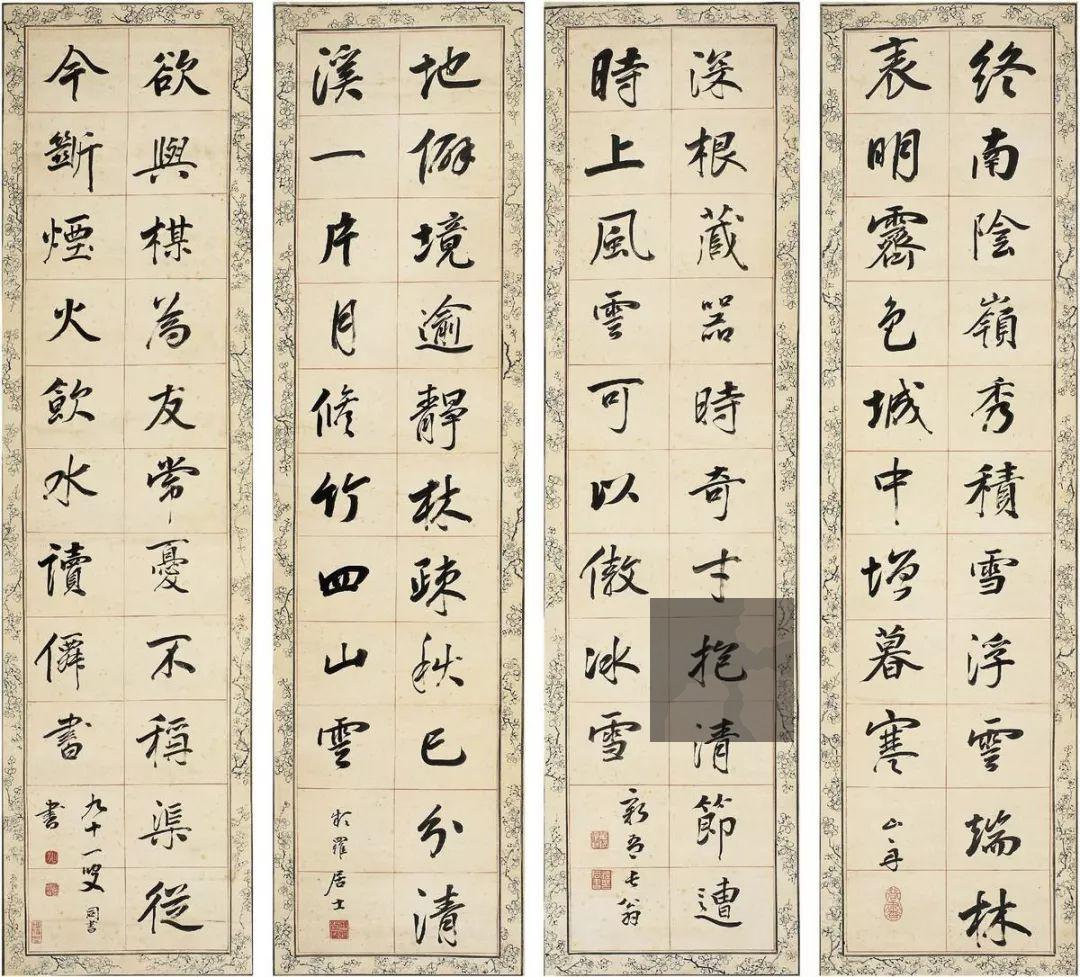 終南陰嶺秀積雪浮雲端林
表明霽色城中增暮寒
深根藏器時奇才抱清節遭
時上風雲可以傲冰雪
地僻境逾靜林疎秋已分清
溪一片月脩竹四山雲
於羅居士
欲與棋為友常憂不稱渠從
今斷煙火飲水讀僊書
九十一叟
書